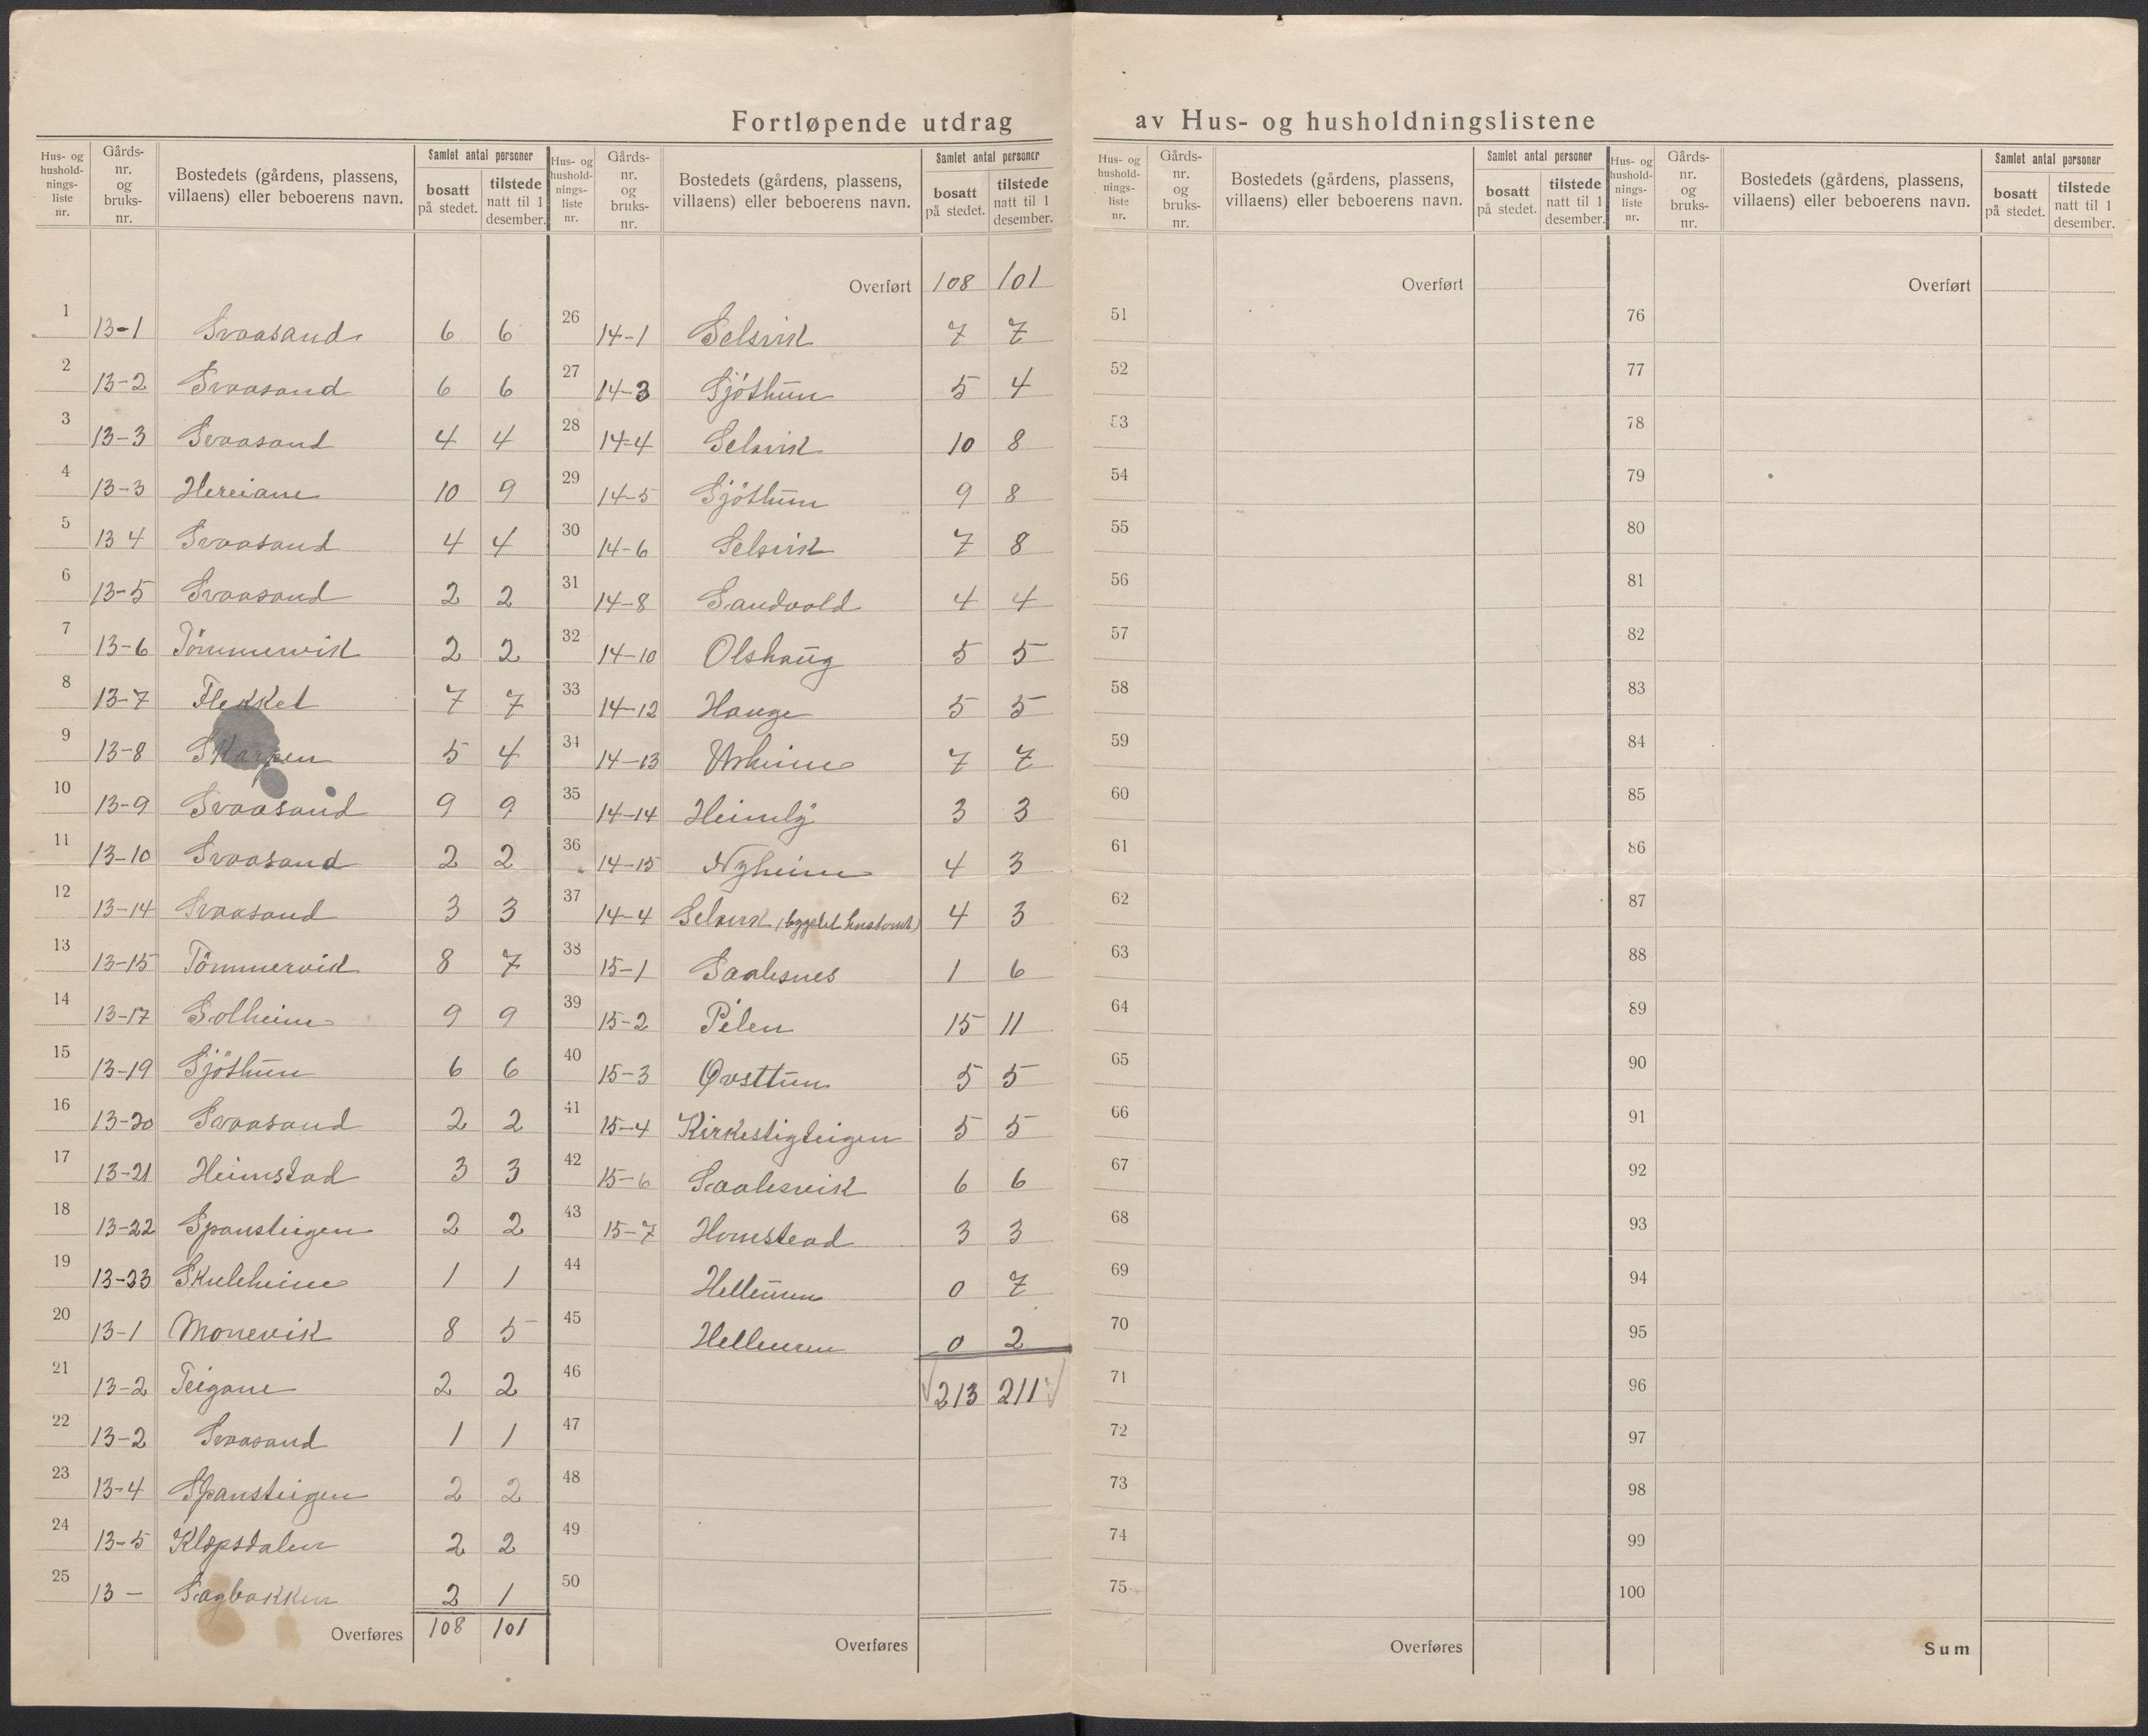 Fortløpende utdrag av Hus- og husholdningslistene
Hus- og hushold-nings-liste nr. | Gårds-nr. og bruks-nr. | Bostedets (gårdens, plassens, villaens) eller beboerens navn. | Samlet antal personer | bosatt på stedet. | tilstede natt til 1 desember.
1 13-1 Svaasand 6 6
2 13-2 Svaasand 6 6
3 13-3 Svaasand 4 4
4 13-3 Hereiane 10 9
5 13 4 Svaasand 4 4
6 13-5 Svaasand 2 2
7 13-6 Tömmervik 2 2
8 13-7 Flekket 7 7
9 13-8 Skarpen 5 4
10 13-9 Svaasand 9 9
11 13-10 Svaasand 2 2
12 13-14 Svaasand 3 3
13 13-15 Tömmervik 8 7
14 13-17 Solheim 9 9
15 13-19 Sjöthun 6 6
16 13-20 Svaasand 2 2
17 13-21 Heimstad 3 3
18 13-22 Spansteigen 2 2
19 13-23 Skuleheim 1 1
20 13-1 Monevik 8 5
21 13-2 Teigane 2 2
22 13-2 Svaasand 1 1
23 13-4 Spansteigen 2 2
24 13-5 Kløpsdalen 2 2
25 13 - Sagbakken 2 1
Overføres 108 101
Hus- og hushold-nings-liste nr. | Gårds-nr. og bruks-nr. | Bostedets (gårdens, plassens, villaens) eller beboerens navn. | Samlet antal personer | bosatt på stedet. | tilstede natt til 1 desember.
Overført 108 101
26 14-1 Selsvik 7 7
27 14-3 Sjöthun 5 4
28 14-4 Selsvik 10 8
29 14-5 Sjöthun 9 8
30 14-6 Selsvik 7 8
31 14-8 Sandvold 4 4
32 14-10 Olshaug 5 5
33 14-12 Hauge 5 5
34 14-13 Urheim 7 7
35 14-14 Heimly 3 3
36 14-15 Nyheim 4 3
37 14-4 Selsvik (bygslet hustomt) 4 3
38 15-1 Saalesnes 1 6
39 15-2 Pilen 15 11
40 15-3 Øvsttun 5 5
41 15-4 Kirkestigteigen 5 5
42 15-6 Saalesvik 6 6
43 15-7 Homstead 3 3
44 Helleuren 0 7
45 Helleuren 0 2
46 213 211
47
48
49
50
Overføres
Hus- og hushold-nings-liste nr. | Gårds-nr. og bruks-nr. | Bostedets (gårdens, plassens, villaens) eller beboerens navn. | Samlet antal personer | bosatt på stedet. | tilstede natt til 1 desember.
Overført
51
52
53
54
55
56
57
58
59
60
61
62
63
64
65
66
67
68
69
70
71
72
73
74
75
Overføres
Hus- og hushold-nings-liste nr. | Gårds-nr. og bruks-nr. | Bostedets (gårdens, plassens, villaens) eller beboerens navn. | Samlet antal personer | bosatt på stedet. | tilstede natt til 1 desember.
Overført
76
77
78
79
80
81
82
83
84
85
86
87
88
89
90
91
92
93
94
95
96
97
98
99
100
Sum